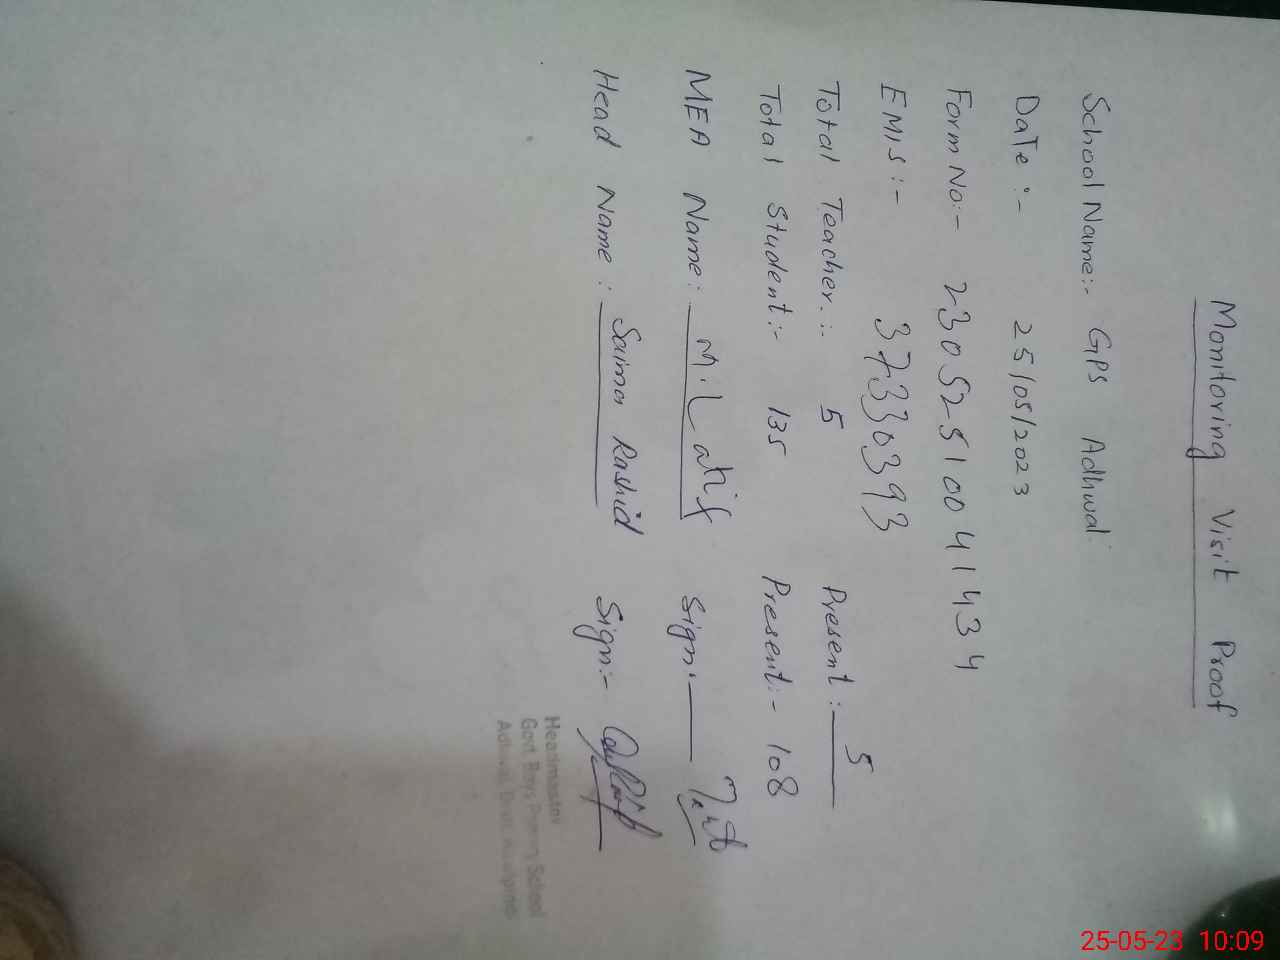 Monitoring Visit Proof
School Name:- GPS Adhwal
Date :- 25/05/2023
Form No:- 230525100414334
EMIS :- 37330393
Total Teacher. :- 5 Present :- 5
Total Student :- 135 Present :- 108
MEA Name: M. Latif Sign:-
Head Name : Saima Rashid Sign:-
Headmaster
Govt. Boys Primary School
Adhwal
25-05-23 10:09